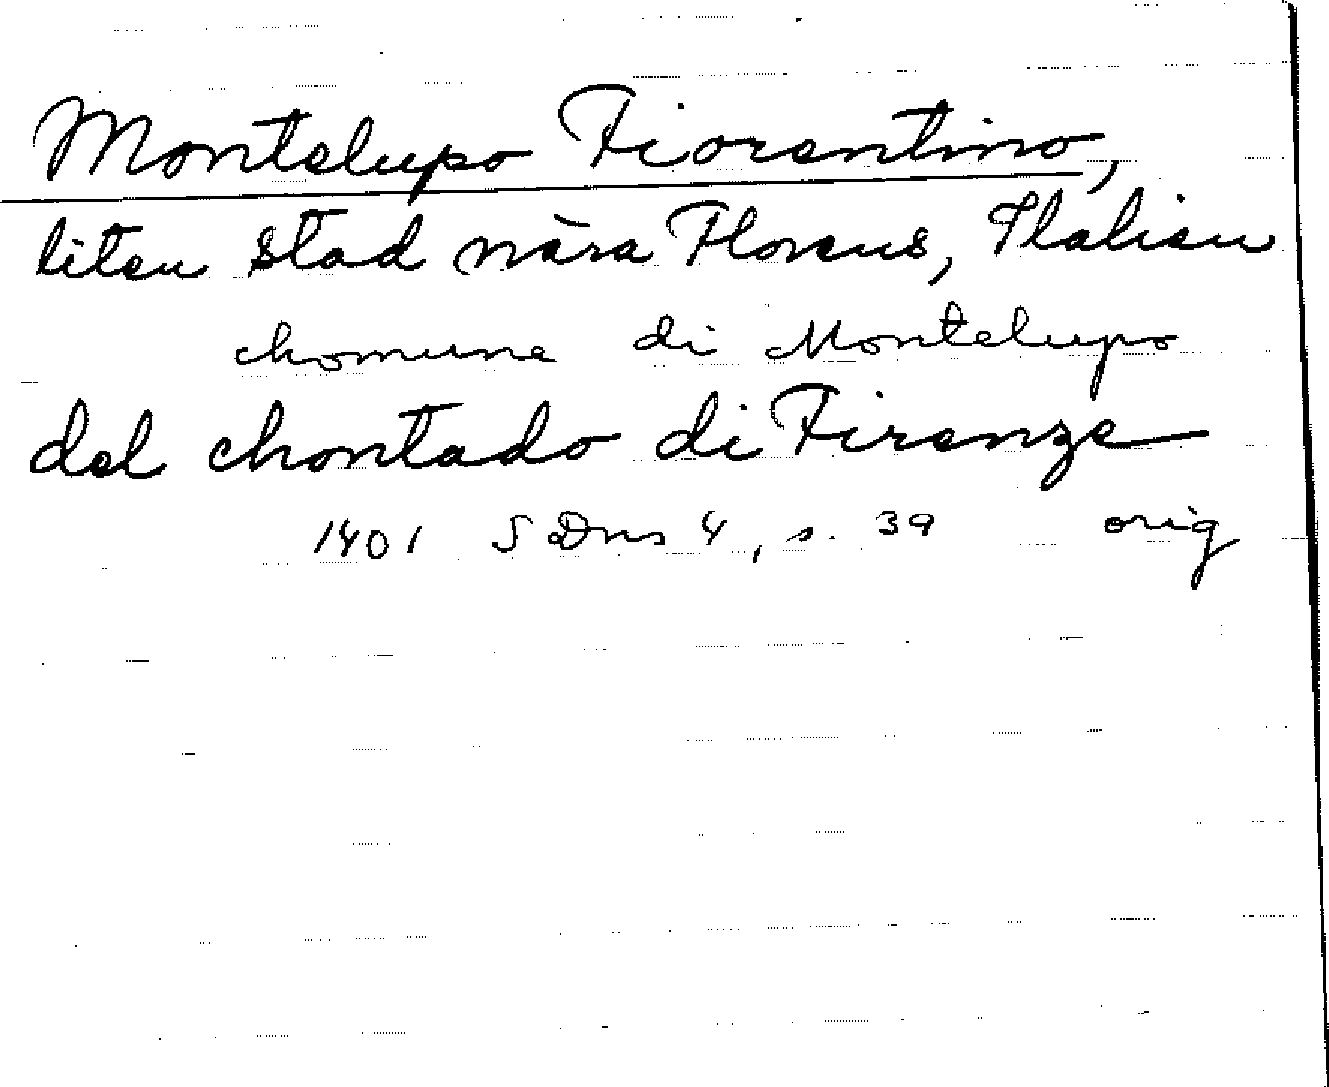 Montelupo Fiorentino,
liten stad nära Florens, Italien
chomune di Montelupo
del chontado di Firenze
1401 SDns 4, s. 39 orig